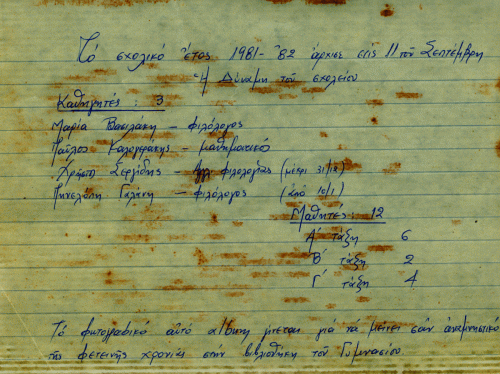 Τό σχολικό έτος 1981-'82 άρχισε στις 11 του Σεπτέμβρη
Ἡ Δύναμη του σχολείου
Καθηγητές : 3
Μαρία Βασιλάκη - φιλόλογος
Παύλος Καλογεράκης - μαθηματικός
Χρήστη Σεργίδης - Αγγλ. φιλολογίας (μέχρι 31/12)
Πηνελόπη Γαλάνη - φιλόλογος (από 10/1)
Μαθητές: 12
Α' τάξη 6
Β' τάξη 2
Γ' τάξη 4
Τό φωτογραφικό αυτό άλμπουμ γίνεται γιά τά μείνει σάν αναμνηστικό
της φετεινής χρονιάς στήν βιβλιοθήκη του Γυμνασίου.